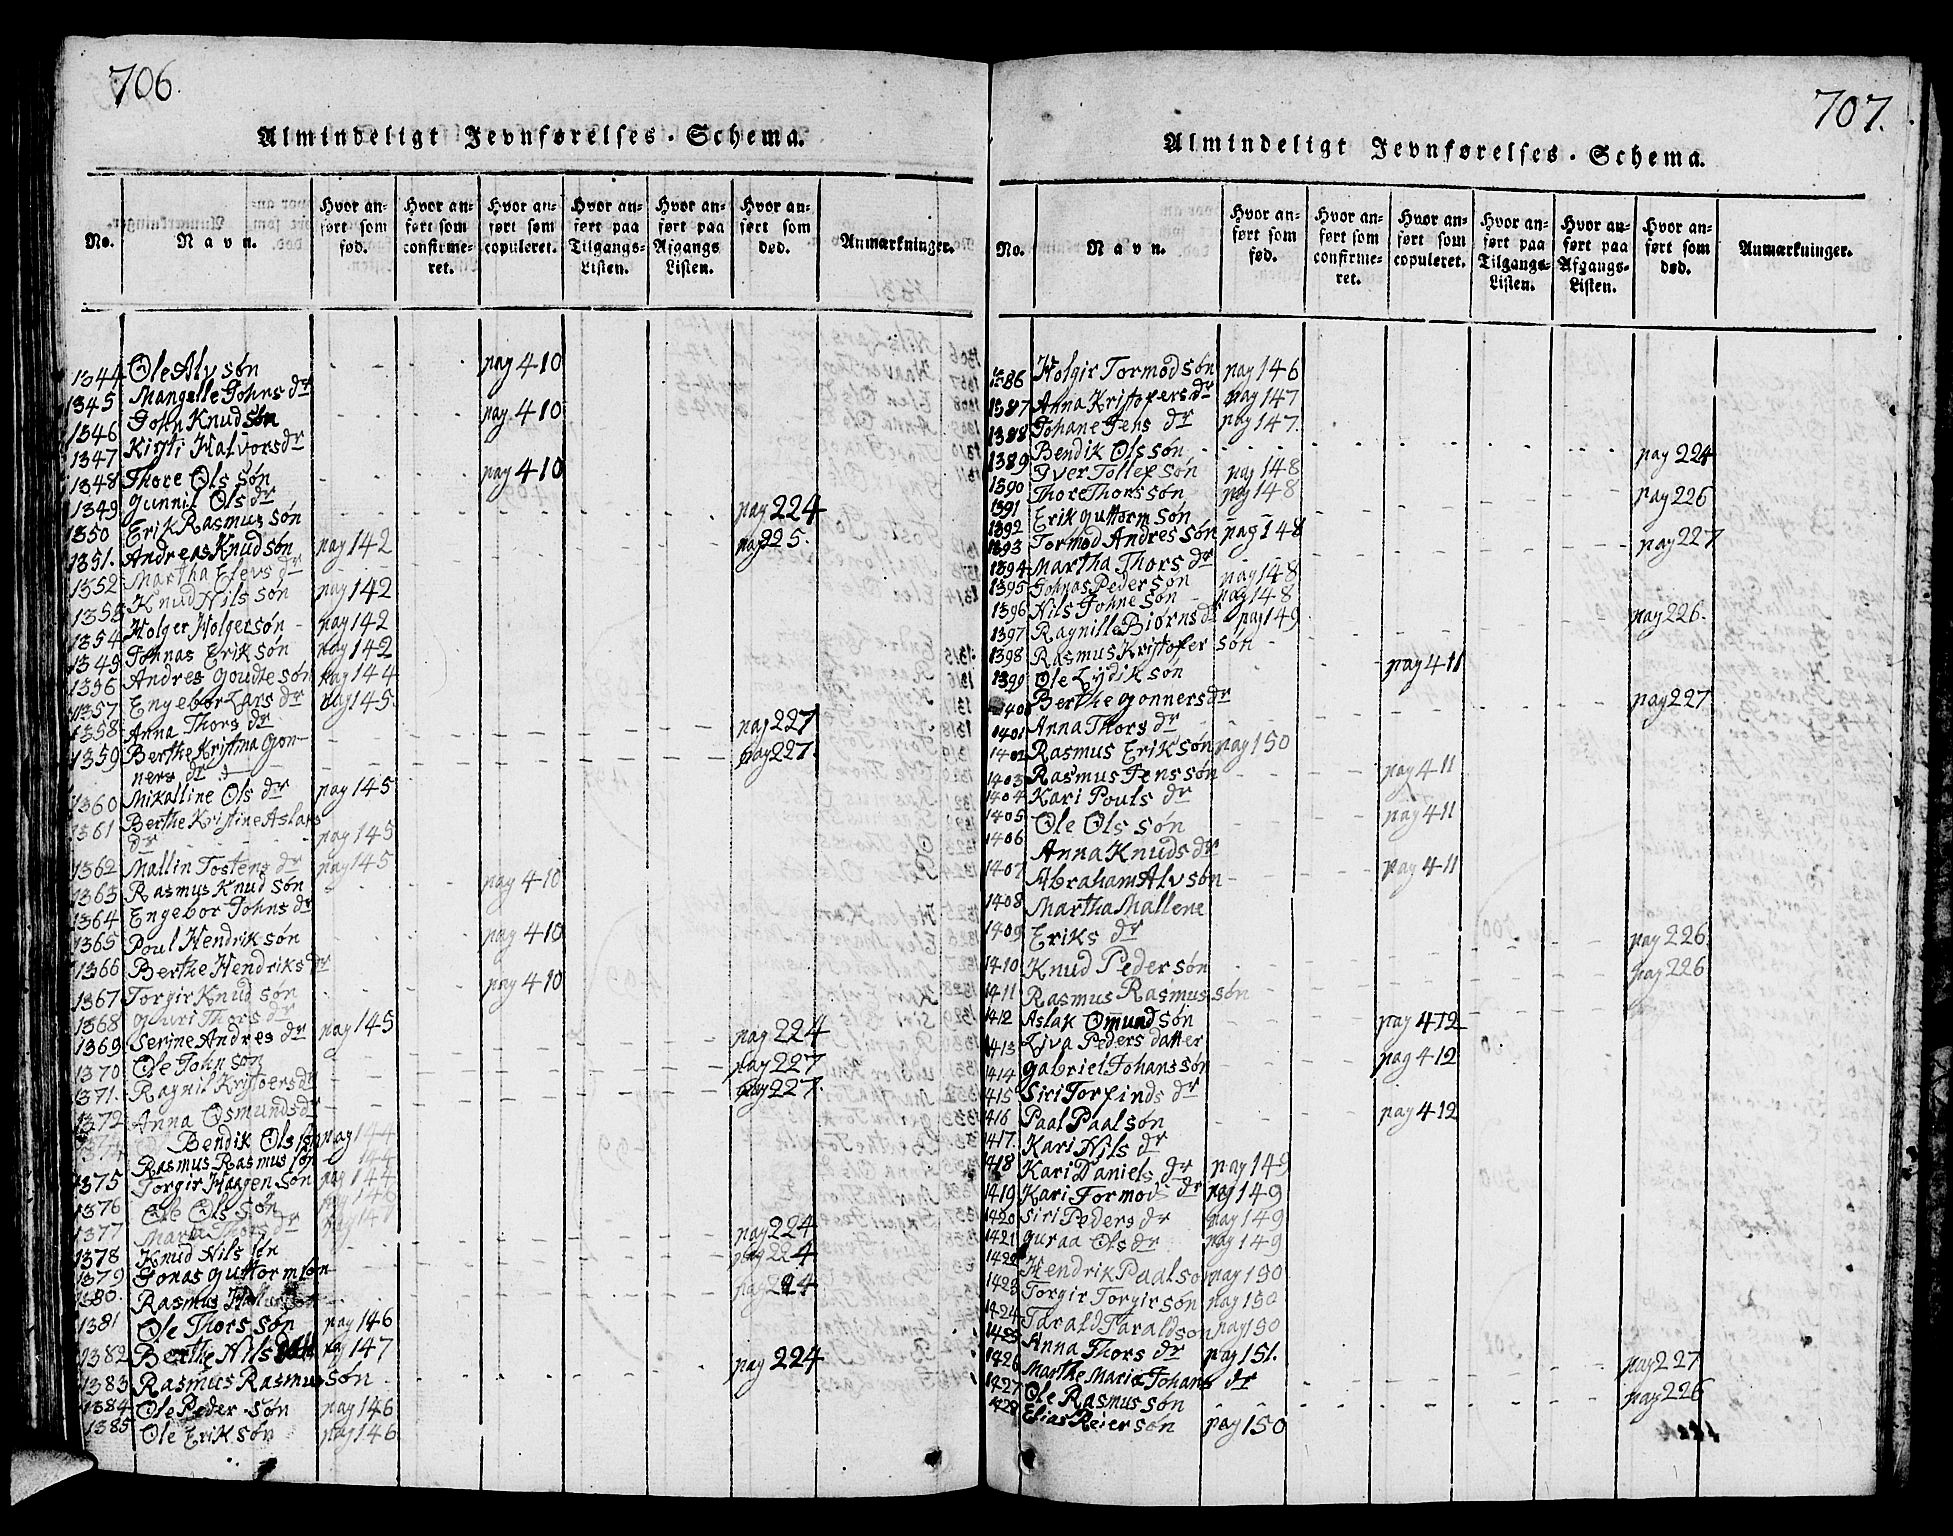 706.
Almindeligt Jevnførelses-Schema.
No.
Navn.
Hvor anført som fød.
Hvor anført som confirmeret.
Hvor anført som copuleret.
Hvor anført paa Tilgangs-Listen.
Hvor anført paa Afgangs Listen.
Hvor anført som død.
Anmærkninger.
1344 Ole Alvsøn - - - pag 410
1345 Mangelle Johns dr
1346 John Knudsøn - - - pag 410
1347 Kirsti Halvors dr
1348 Thore Ols søn - - - pag 410
1349 Gunnil Ols dr
1350 Erik Rasmus søn - - - pag 224
1351. Andreas Knudsøn pag 142
1352 Martha Elevs dr - - - pag 225.
1353 Knud Nils søn pag 142
1354 Holger Holgersøn - pag 142
1349 Johnas Erik søn pag 142
1356 Andres Goudtesøn pag 144
1357 Engebor Lars dr pag 145.
1358 Anna Thors dr - - - pag 227
1359 Berthe Kristina Gon-
ners dr - - - pag 227.
1360 Mikalline Ols dr pag 145
1361 Berthe Kristine Aslaks
dr - - - pag 145
1362 Mallin Tostens dr pag 145
1363 Rasmus Knud søn - - - pag 410
1364 Engebor Johns dr
1365 Poul Hendrik søn - - - pag 410
1366 Berthe Hendriks dr
1367 Torgir Knud søn - - - pag 410
1368 Guri Thors dr
1369 Serine Andres dr pag 145
1370 Ole John søn - - - pag 224
1371. Ragnil Kristoers dr - - - pag 227
1372 Anna Osmunds dr - - - pag 227.
1374 Bendik Ols søn pag 144
Rasmus Rasmus søn - 144
1375 Torgir Haagen søn pag 144
1376 Ole Ols søn pag 146
1377 Maria Thors dr pag 147
1378 Knud Nils søn - - - pag 224
1379 Jonas Guttorm søn - - - pag 224
1380. Rasmus Halvorsøn - - - pag 224
1381 Ole Thors søn pag 146
1382 Berthe Nils Datt pag 147
1383 Rasmus Rasmus søn - - - pag 224
1384 Ole Peder søn pag 146
1385 Ole Erik søn pag 146
707.
Almindeligt Jevnførelses-Schema.
No.
Navn.
Hvor anført som fød.
Hvor anført som confirmeret.
Hvor anført som copuleret.
Hvor anført paa Tilgangs-Listen.
Hvor anført paa Afgangs-Listen.
Hvor anført som død.
Anmærkninger.
1386 Holgir Tormod søn pag 146
1387 Anna Kristofers dr pag 147
1388 Johane Jens dr pag 147
1389 Bendik Ols søn - - - pag 224
1390 Iver Tollef søn pag 148
1391 Thore Thors søn pag 148
1392 Erik Guttorm søn - - - pag 226
1393 Tormod Andres søn pag 148
1394 Martha Thors dr - - - pag 227
1395 Johnas Peder søn pag 148
1396 Nils Johne søn - pag 148
1397 Ragnille Biørns dr pag 149
1398 Rasmus Kristofer søn - - - pag 226.
1399 Ole Lydik søn - - - pag 411
1400 Berthe Gonners dr
1401 Anna Thors dr - - - pag 227
1402 Rasmus Erik søn pag 150
1403 Rasmus Jens søn - - - pag 411
1404 Kari Pouls dr
1405 Ole Ols søn - - - pag 411
1406 Anna Knuds dr
1407 Abraham Alv søn - - - pag 411
1408 Martha Mallene
1409 Eriks dr
1410 Knud Peder søn - - - pag 226.
1411 Rasmus Rasmus søn - - - pag 226
1412 Aslak Omund søn - - - pag 412
1413 Liva Peders datter
1414 Gabriel Johans søn - - - pag 412
1415 Siri Torfinds dr
1416 Paal Paal søn - - - pag 412
1417. Kari Nils dr
1418 Kari Daniels dr pag 149
1419 Kari Tormods dr pag 149
1420 Siri Peders dr pag 149
1421 Guraa Ols dr pag 149
1422 Hendrik Paal søn pag 150
1423 Torgir Torgir søn pag 150
1424 Tarald Taraldson pag 150
1425 Anna Thors dr pag 151.
1426 Marthe Maria Johans dr - - - pag 227
1427 Ole Rasmus søn - - - pag 226
1428 Elias Reier søn pag 150